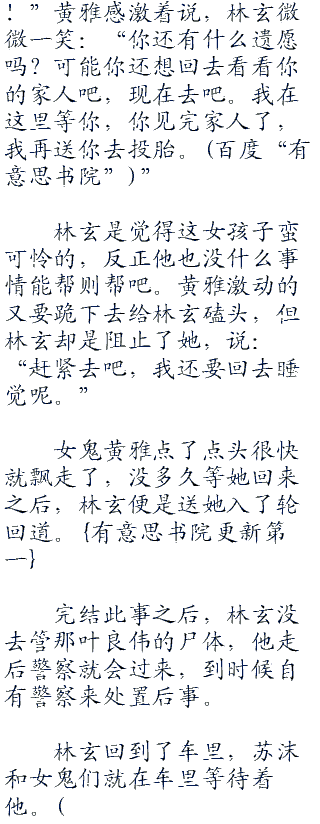 ！”黄雅感激着说，林玄微
微一笑：“你还有什么遗愿
吗？可能你还想回去看看你
的家人吧，现在去吧。我在
这里等你，你见完家人了，
我再送你去投胎。(百度“有
意思书院”)”
林玄是觉得这女孩子蛮
可怜的，反正他也没什么事
情能帮则帮吧。黄雅激动的
又要跪下去给林玄磕头，但
林玄却是阻止了她，说：
“赶紧去吧，我还要回去睡
觉呢。”
女鬼黄雅点了点头很快
就飘走了，没多久等她回来
之后，林玄便是送她入了轮
回道。{有意思书院更新第
一}
完结此事之后，林玄没
去管那叶良伟的尸体，他走
后警察就会过来，到时候自
有警察来处置后事。
林玄回到了车里，苏沫
和女鬼们就在车里等待着
他。(